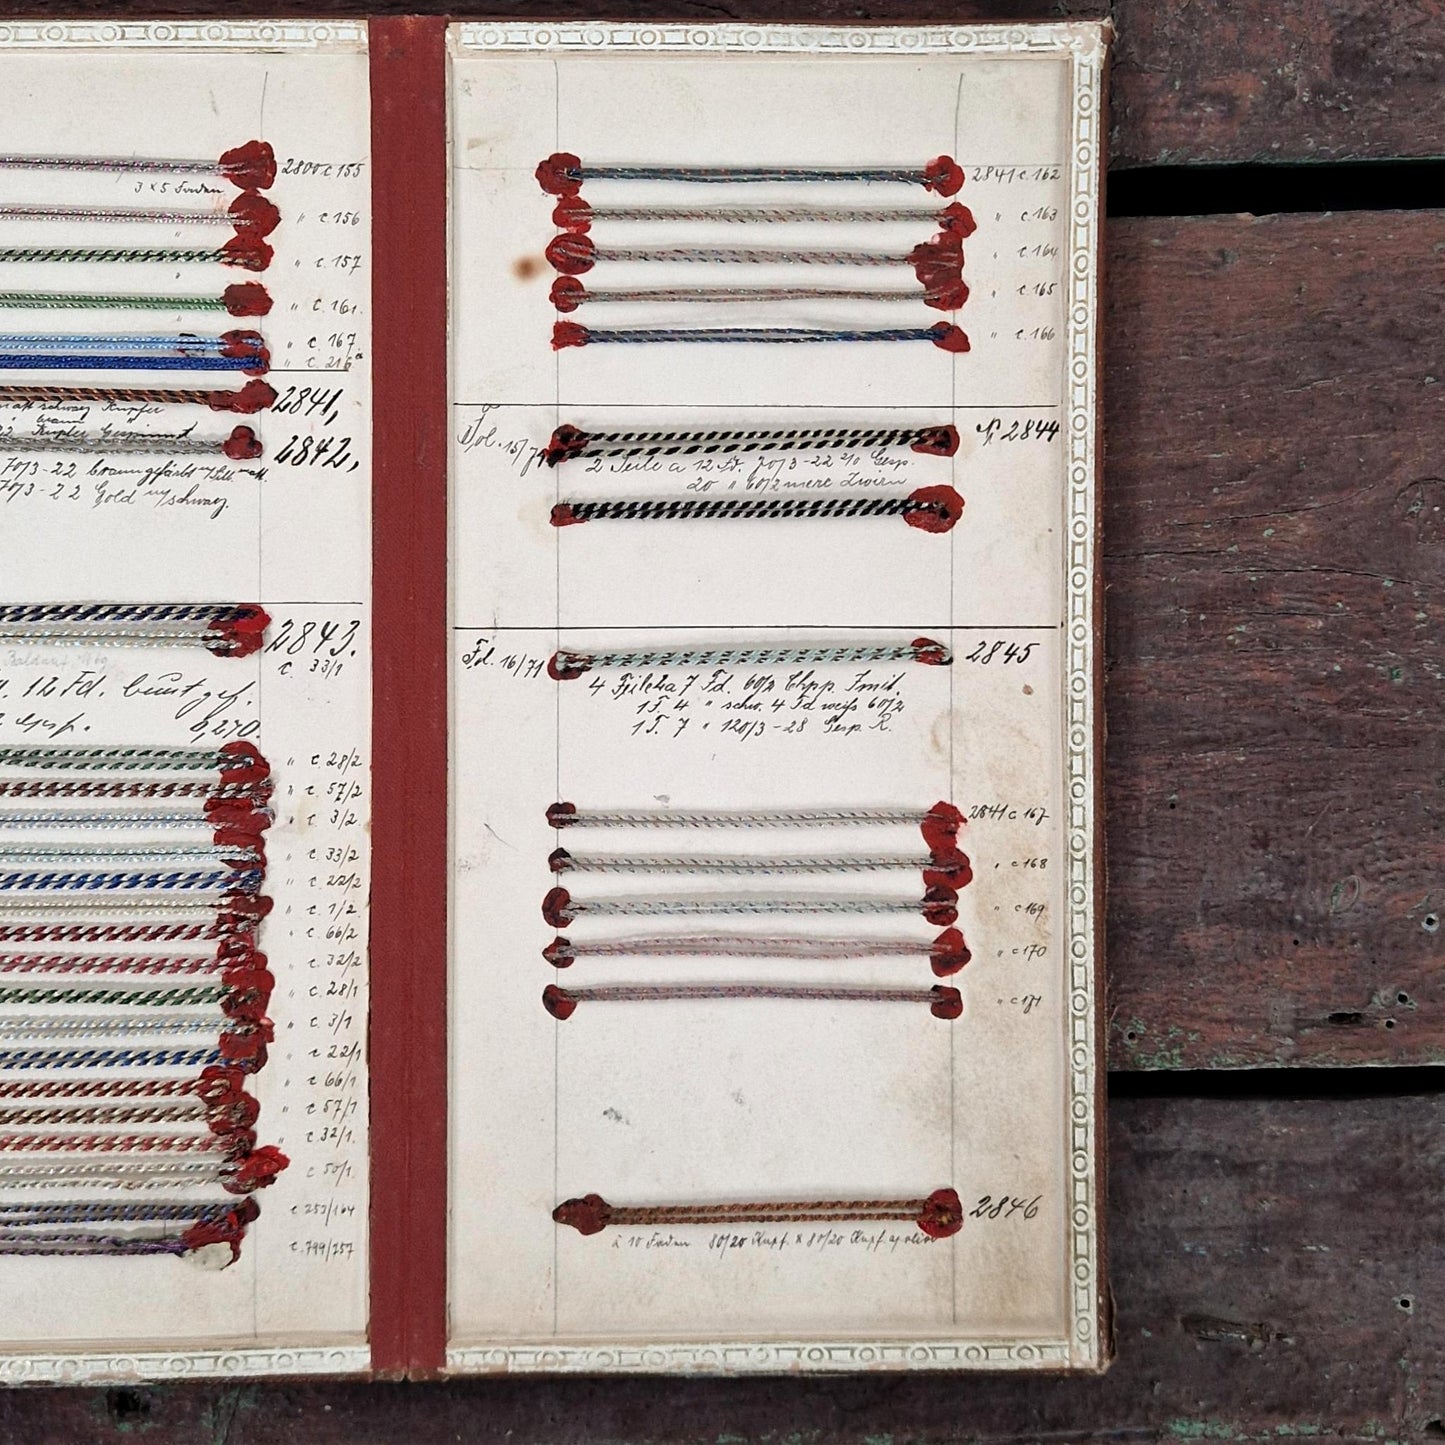 2800 c 155
3 x 5 Faden
" c. 156
"
" c. 157
"
" c. 161.
"
" c. 167
" c. 216
2841,
schwarz Kupfer
braun
22 Kupfer Gespinnst
2842,
70/3-22 braungefärbt
70/3-22 Gold schwarz.
2843.
c. 33/1
12 Fd. bunt gef.
Gesp. 8,270.
" c. 28/2
" c. 57/2
" c. 3/2.
" c. 33/2
" c. 22/2
" c. 1/2.
" c. 66/2
" c. 32/2
" c. 28/1
" c. 3/1
" c 22/1
" c 66/1
" c 57/1
" c. 32/1.
c 50/1
c 253/164
c. 799/257
2841 c. 162
" c. 163
" c. 164
" c. 165
" c. 166
Fol. 15/71
№ 2844
2 Teile a 12 Fd. 70/3-22 Gesp.
20 " 60/2 merc Zwirn
Fd. 16/71
2845
4 Teile a 7 Fd. 60/2 Chpp. Imit.
1 T. 4 " schw. 4 Fd weiß 60/2
1 T. 7 " 120/3-28 Gesp. R.
2841 c 167
" c 168
" c 169
" c 170
" c 171
2846
à 10 Faden 80/20 Kupf. x 80/20 Kupf.